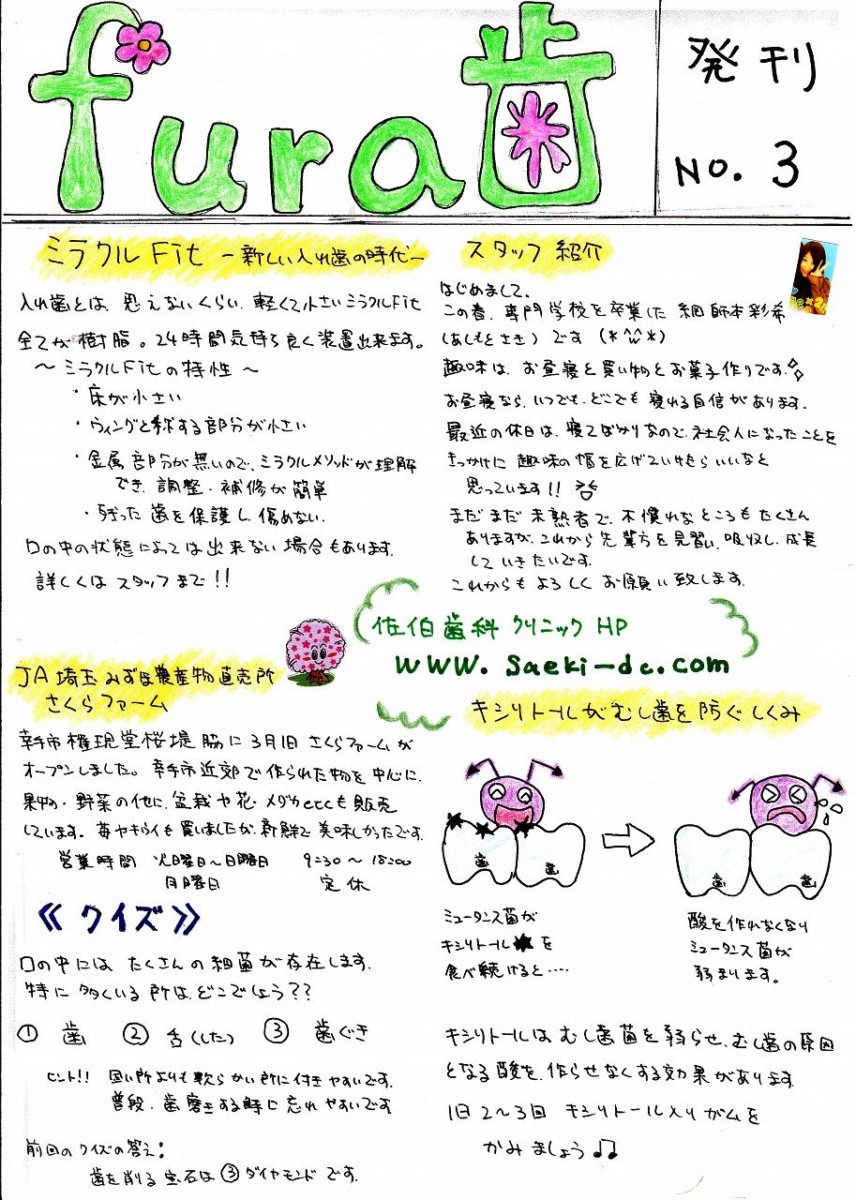 fura歯
発刊
No. 3
ミラクルFit -新しい入れ歯の時代-
入れ歯とは、思えないくらい、軽くて小さいミラクルFit
全てが樹脂。24時間気持ち良く装置出来ます。
〜ミラクルFitの特性〜
・床が小さい
・ウィングと称する部分が小さい
・金属部分が無いので、ミラクルメソッドが理解
でき、調整・補修が簡単
・残った歯を保護し、傷めない。
口の中の状態によっては出来ない場合もあります。
詳しくはスタッフまで!!
スタッフ紹介
はじめまして。
この春、専門学校を卒業した 網師本彩希
(あじもとさき)です (*^w^*)
趣味は、お昼寝と買い物とお菓子作りです。
お昼寝なら、いつでも、どこでも寝れる自信があります。
最近の休日は、寝てばかりなので、社会人になったことを
きっかけに 趣味の幅を広げていけたらいいなと
思っています!!
まだまだ未熟者で、不慣れなところもたくさん
ありますが、これから先輩方を見習い、吸収し、成長
していきたいです。
これからもよろしくお願い致します。
佐伯歯科クリニックHP
www.saeki-dc.com
JA埼玉みずほ農産物直売所
さくらファーム
幸手市権現堂桜堤脇に3月1日さくらファームが
オープンしました。幸手市近郊で作られた物を中心に、
果物・野菜の他に、盆栽や花・メダカetcも販売
しています。苺ヤキライも買いましたが、新鮮で美味しかったです。
営業時間 火曜日〜日曜日 9:30〜18:00
月曜日 定休
《クイズ》
口の中には たくさんの細菌が存在します。
特に多くいる所は、どこでしょう??
① 歯 ② 舌(した) ③ 歯ぐき
ヒント!! 固い所よりも軟らかい所に付きやすいです。
普段、歯磨きする時に忘れやすいです
前回のクイズの答え:
歯を削る宝石は③ダイヤモンドです。
キシリトールがむし歯を防ぐしくみ
歯 歯
歯 歯
ミュータンス菌が
キシリトール を
食べ続けると‥‥
酸を作れなくなり
ミュータンス菌が
弱まります。
キシリトールはむし歯菌を弱らせ、むし歯の原因
となる酸を、作らせなくする効果があります。
1日2〜3回 キシリトール入りガムを
かみましょう♪♫